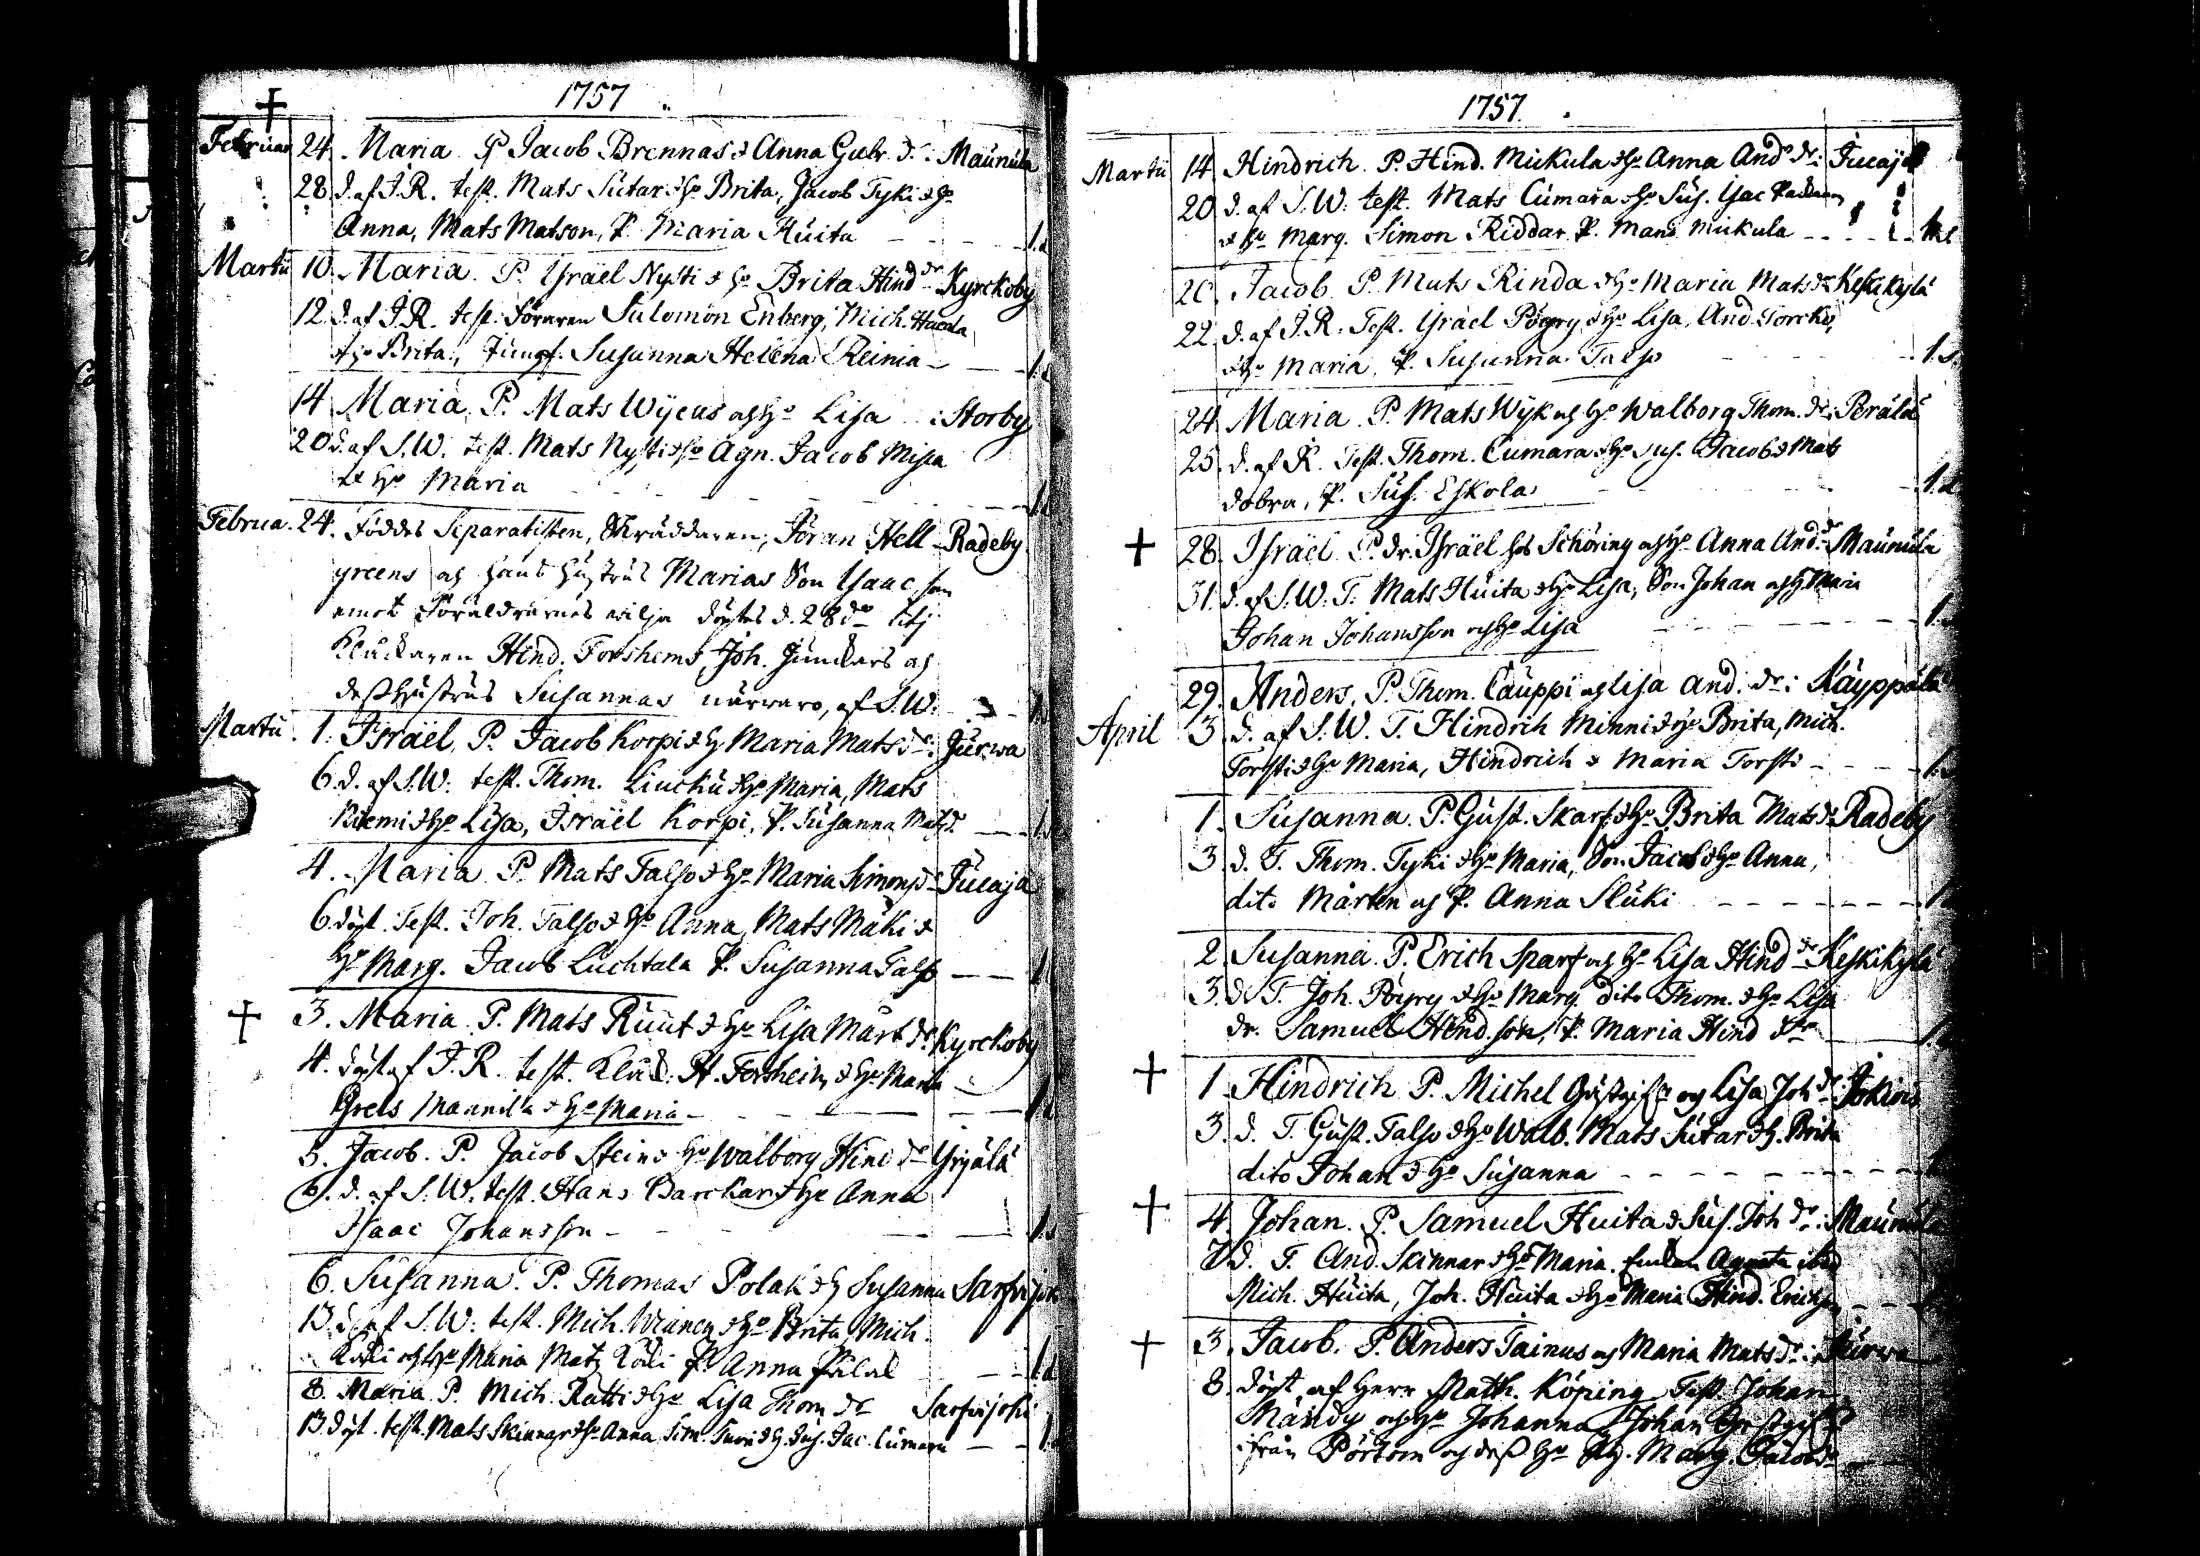 1757
Februar 24. Maria. P. Jacob Brennas & Anna Gabr. dr: Maunula
28. d. af J.R. test. Mats Sutar & Ho Brita, Jacob Tyki & Ho
Anna, Mats Matson, P. Maria Huita
Martii 10. Maria. P. Israel Nysti & Ho Brita Hind dr Kyrckoby
12. d. af J.R. test. Föraren Salomon Enberg, Mich.
& Ho Brita, Jungf. Susanna Helena Reinia
14 Maria. P. Mats Wycus och Ho Lisa : Storby
20 d. af S.W. test. Mats Nysti & Ho Agn. Jacob Mispa
& Ho Maria
Februa. 24. Föddes Separatisten, Skräddaren, Jöran Hell- Radeby
greens och hans hustrus Marias Son Isaac, som
emot Föräldrarnes wilja döptes d. 28 do
Kluckaren Hind. Forshems, Joh. Junckars och
dess hustrus Susannas närwaro, af S.W.
Martii. 1. Israël, P. Jacob Korpi & H Maria Mats dr: Jurwa
6. d. af S.W. test. Thom. Liuchu & Ho Maria, Mats
Niemi & Ho Lisa, Israël Korpi, P. Susanna Mats d.
4. Maria. P. Mats Talso & Ho Maria Simons dr Jucaja
6 döpt. Test. Joh. Talso & Ho Anna, Mats Mäki &
Ho Marg. Jacob Luchtala P. Susanna Talso
3. Maria. P. Mats Ruut & Ho Lisa Mårt. dr Kyrckoby
4. döpt af J.R. test. Kluck. H. Forsheim & Ho Maria
Grels Mannila & Ho Maria
5. Jacob. P. Jacob Stein & Ho Walborg Hind dr Yrjälä
6. d. af S.W. test. Hans Barckar & Ho Anna
Isaac Johansson
6. Susanna. P. Thomas Polak & H Susanna Sarfvijoki
13. d. af S.W. test. Mich. & Ho Brita, Mich.
och Ho Maria Mats P. Anna
8. Maria P. Mich. Ratti & Ho Lisa Thom dr Sarfvijoki
13. döpt. test. Mats Skinnar & Ho Anna Sim. & H. Sus. Jac. Cumara
1757.
Martii 14 Hindrich. P. Hind. Mickula & Ho Anna And. dr: Jucaja
20 d. af S.W. test. Mats Cumara & Ho Sus. Isac
& Ho Marg. Simon Riddar P. Maria Mickula
20. Jacob. P. Mats Rinda & Ho Maria Mats dr Keskikylä
22 d. af J.R. Test. Israel Pöyry & Ho Lisa, And. Torcko,
& Ho Maria, P. Susanna Talso
24 Maria. P. Mats Wyk och Ho Walborg Thom. dr: Perälä
25. d. af R. Test. Thom. Cumara & Ho Sus. Jacob & Mats
dobra, P. Sus. Eskola
28. Israël. P. dr. Israël Schöring och Ho Anna And. dr Maunula
31. d. af S.W. T. Mats Huita & Ho Lisa, Son Johan och H Maria
Johan Johansson och Ho Lisa
29. Anders. P. Thom. Cauppi och Lisa And. dr: Käyppälä
April 3 d. af S.W. T. Hindrih Minni & Ho Brita, Mich.
Torsti & Ho Maria, Hindrich & Maria Torsti
1. Susanna. P. Gust. Skarf & Ho Brita Mats dr Radeby
3 d. T. Thom. Tyki & Ho Maria, Son Jacob & Ho Anna,
dito Mårten och P. Anna Sluki
2. Susanna. P. Erich Sparf och Ho Lisa Hind dr Keskikylä
3. d. T. Joh. Pöyry & Ho Marg. dito Thom. & Ho Lisa
dr. Samuel Hind. son, P. Maria Hind dr
1 Hindrich. P. Michel Gästgifv. och Lisa Joh dr Jokipi
3. d. T. Gust. Talso & Ho Walb. Mats Sutar & H. Brita
dito Johan & Ho Susanna
4. Johan. P. Samuel Huita & Sus. Joh dr: Maunula
7 d. T. And. Skinnar & Ho Maria. Enkan Agneta ibid
Mich. Huita, Joh. Huita & Ho Maria Hind. Erichson
3. Jacob. P. Anders Tainus och Maria Mats dr: Jurwa
8. döpt af Herr Math. Köping Test. Johan
Mändy och Ho Johanna, Johan Gästgif
ifrån Pörtom och dess Ho P. Marg. Jacobs dr